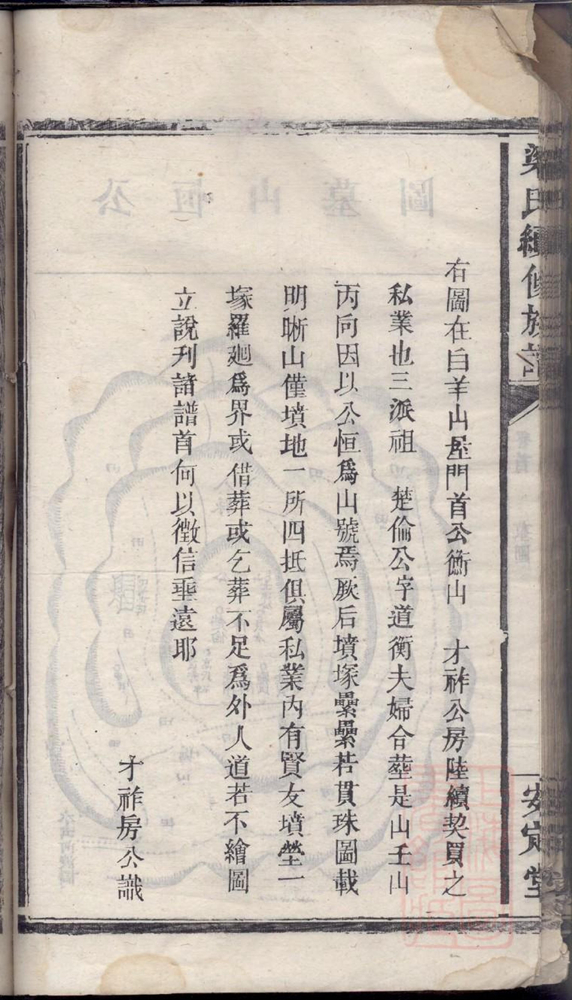 梁氏續修族譜
安定堂
右圖在白羊山屋門首公衡山　才祚公房陸續契買之
私業也三派祖　楚倫公字道衡夫婦合葬是山壬山
丙向因以公恒爲山號焉厥后墳塚纍纍若貫珠圖載
明晰山僅墳地一所四抵俱屬私業內有賢友墳塋一
塚羅廻爲界或借葬或乞葬不足爲外人道若不繪圖
立說刋諸譜首何以徵信垂遠耶
才祚房公識